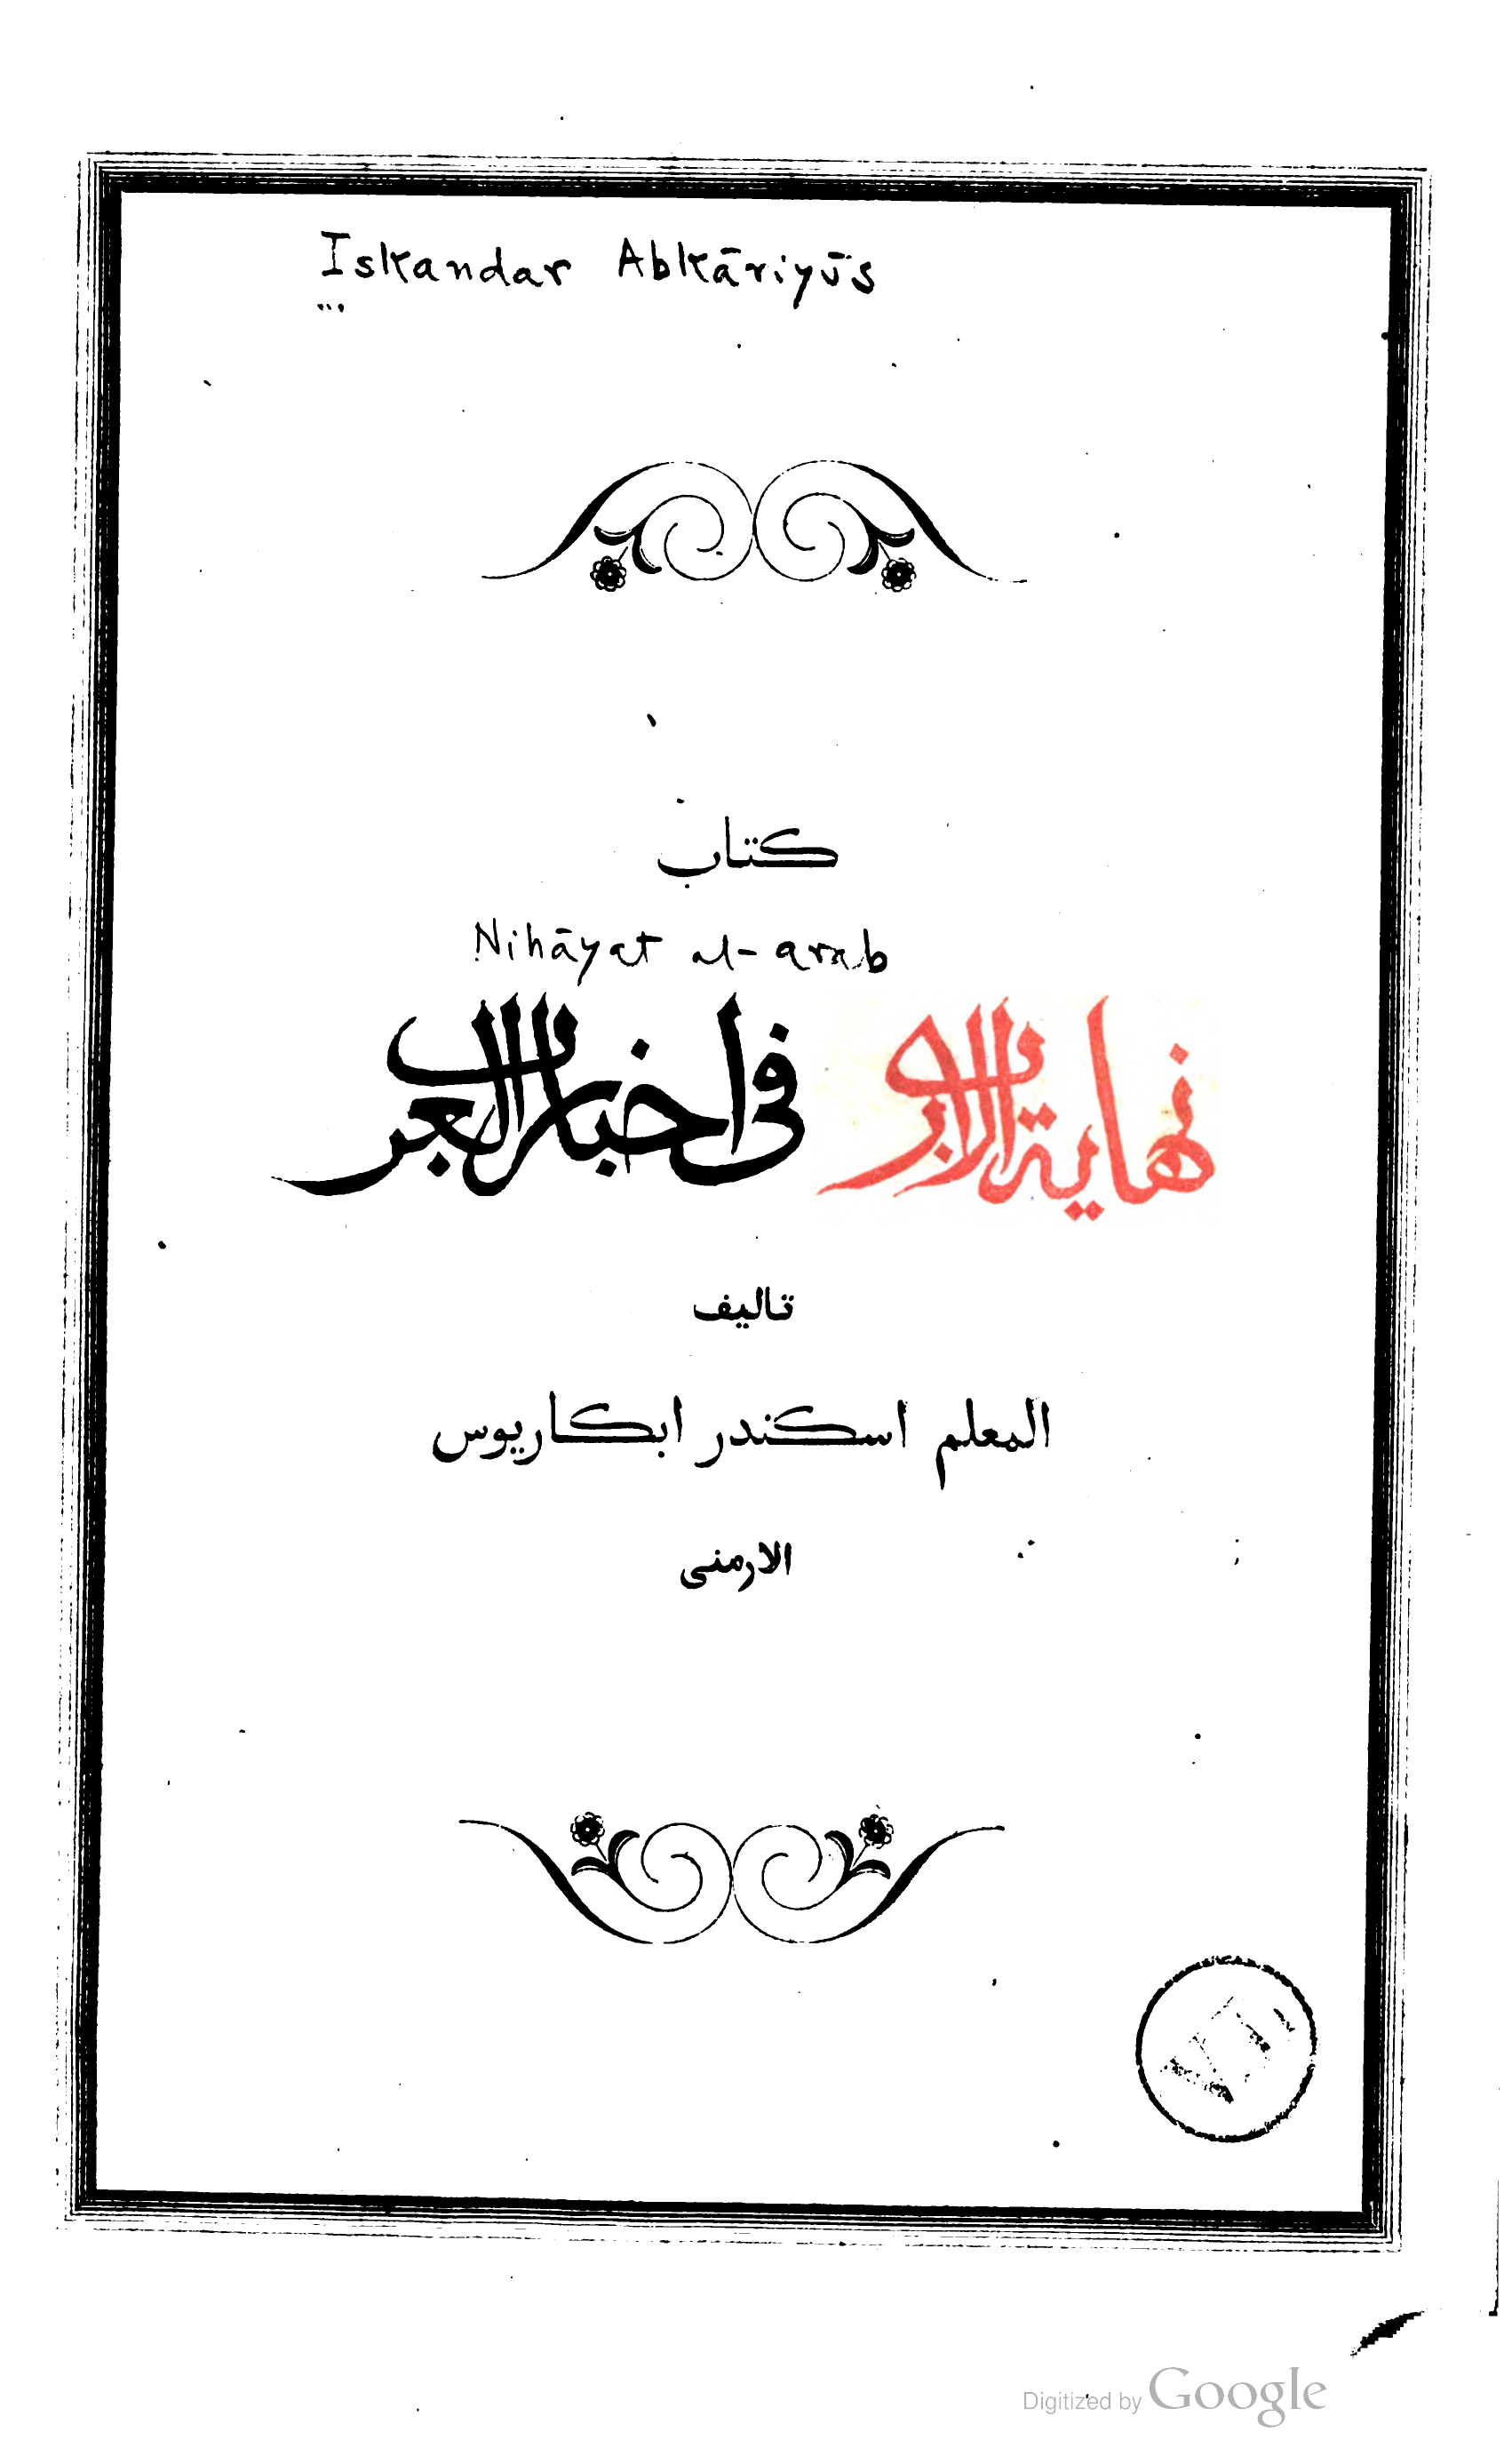 Iskandar Abkāriyūs
كتاب
Nihāyat al-arab
نهاية الارب فى اخبار العرب
تاليف
المعلم اسكندر ابكاريوس
الارمنى
Digitized by Google